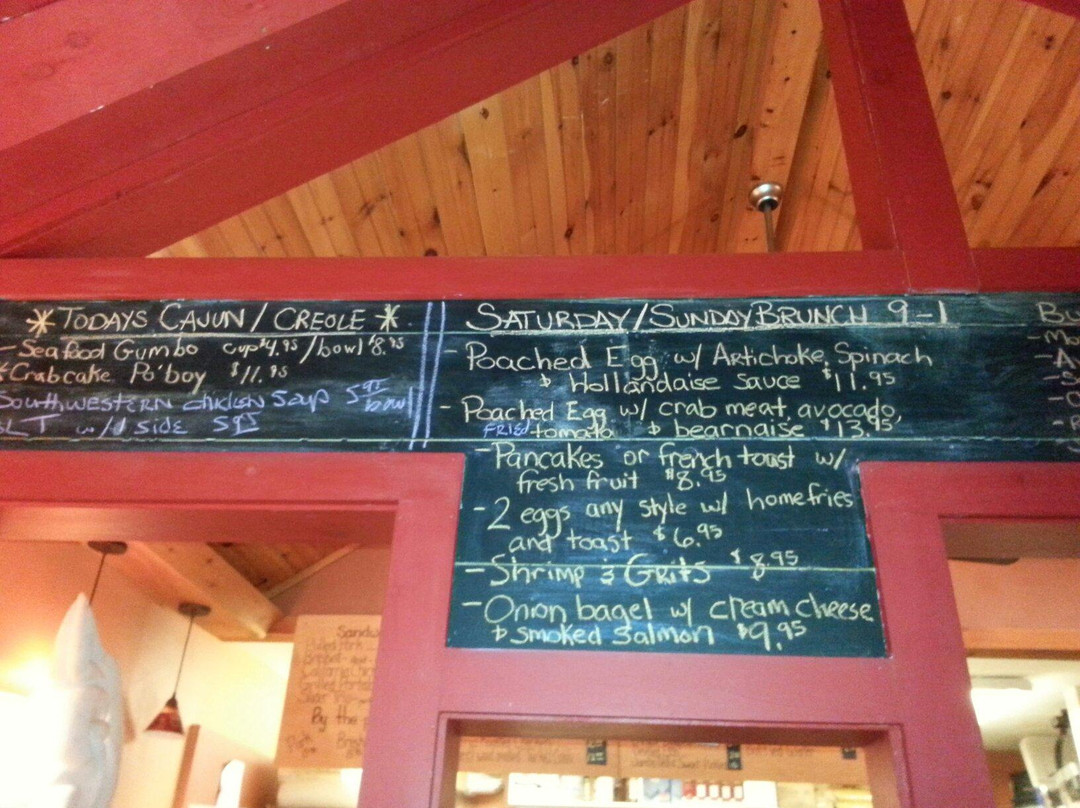 * TODAYS CAJUN / CREOLE *
- Seafood Gumbo cup $4.95 / bowl $8.95
* Crabcake Po'boy $11.95
SOUTHWESTERN chicken soup 5.95 bowl
BLT w/1 side 5.95
SATURDAY/SUNDAY BRUNCH 9-1
- Poached Egg w/ Artichoke, Spinach
& Hollandaise sauce $11.95
- Poached Egg w/ crab meat, avocado,
FRIED tomato & bearnaise $13.95
- Pancakes or french toast w/
fresh fruit $8.95
- 2 eggs any style w/ homefries
and toast $6.95
- Shrimp & Grits $8.95
- Onion bagel w/ cream cheese
& smoked salmon $9.95
By the